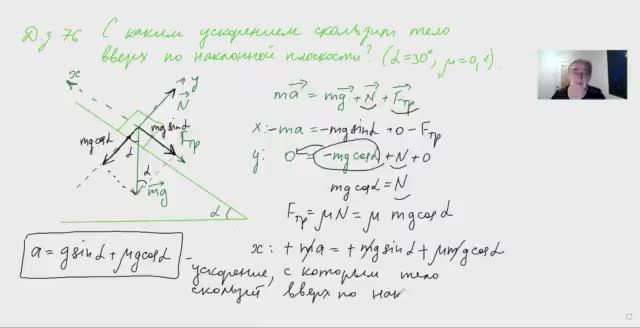 Д.з 76 С каким ускорением скользит тело
вверх по наклонной плоскости? (α=30°, μ=0,1)
x
y
N
mg cosα
mg sinα
Fтр
α
α
mg
α
ma = mg + N + Fтр
x: -ma = -mg sinα + 0 - Fтр
y: 0 = -mg cosα + N + 0
mg cosα = N
Fтр = μN = μ mg cosα
a = g sinα + μg cosα
x: + ma = + mg sinα + μmg cosα
- ускорение, с которым тело
скользит вверх по нак